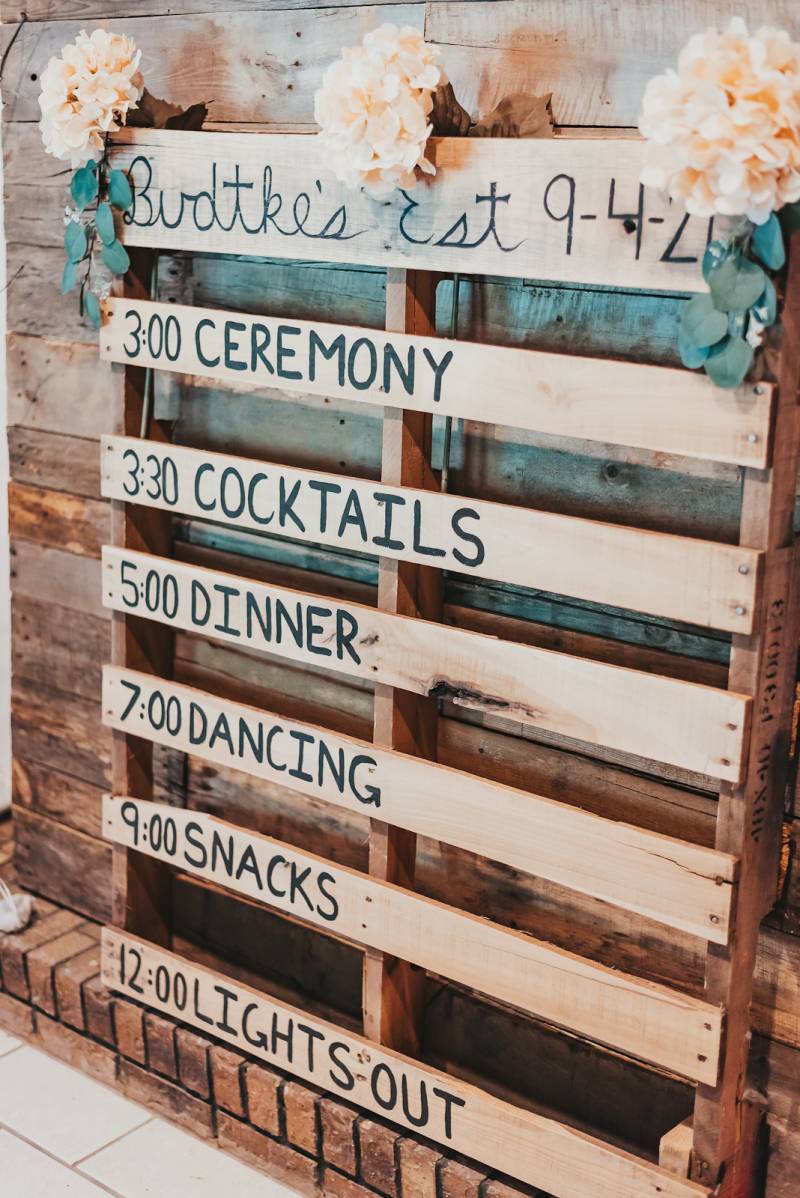 Budtke's Est 9-4-21
3:00 CEREMONY
3:30 COCKTAILS
5:00 DINNER
7:00 DANCING
9:00 SNACKS
12:00 LIGHTS OUT